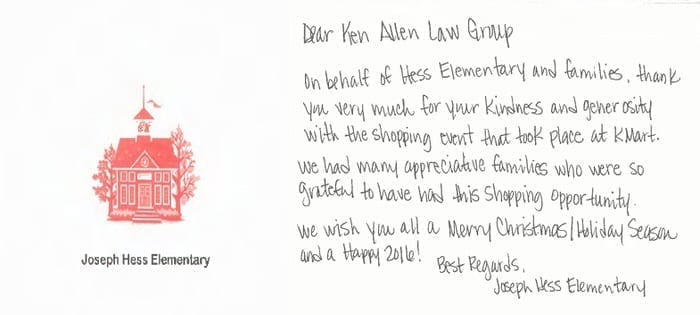 Joseph Hess Elementary
Dear Ken Allen Law Group
On behalf of Hess Elementary and families, thank
you very much for your kindness and generosity
with the shopping event that took place at KMart.
We had many appreciative families who were so
grateful to have had this shopping opportunity.
We wish you all a Merry Christmas/Holiday Season
and a Happy 2016!
Best Regards,
Joseph Hess Elementary